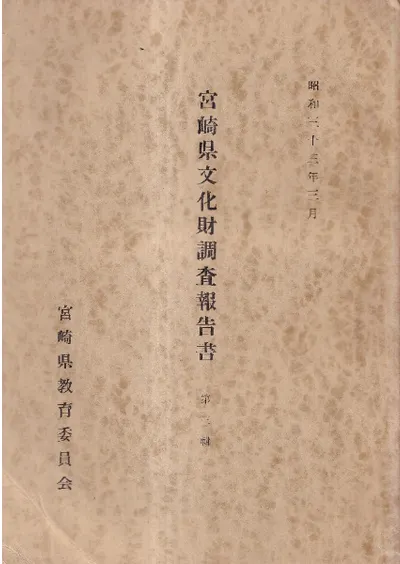 昭和三十三年三月
宮崎県文化財調査報告書 第三輯
宮崎県教育委員会